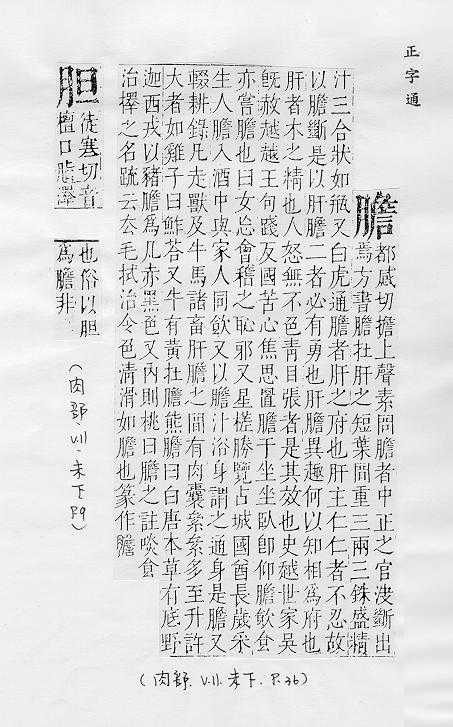 正字通
膽 都感切擔上聲素問膽者中正之官決斷出
焉方書膽在肝之短葉間重三兩三銖盛精
汁三合狀如瓶又白虎通膽者肝之府也肝主仁仁者不忍故
以膽斷是以肝膽二者必有勇也肝膽異趣何以知相爲府也
肝者木之精也人怒無不色青目張者是其效也史越世家吳
旣赦越越王句踐反國苦心焦思置膽于坐坐臥卽仰膽飮食
亦嘗膽也曰女忘會稽之恥邪又星槎勝覽占城國酋長歲采
生人膽入酒中與家人同飮又以膽汁浴身謂之通身是膽又
輟耕錄凡走獸及牛馬諸畜肝膽之間有肉囊纍纍多至升許
大者如雞子曰鮓荅又牛有黃在膽熊膽曰白唐本草有底野
迦西戎以豬膽爲几赤黑色又內則桃曰膽之註啖食
治擇之名疏云去毛拭治令色淸滑如膽也篆作膽
(肉部.V.11.未下.P.36)
胆 徒寒切音
檀口脂澤
也俗以胆
爲膽非
(肉部.V.11.未下P.9)